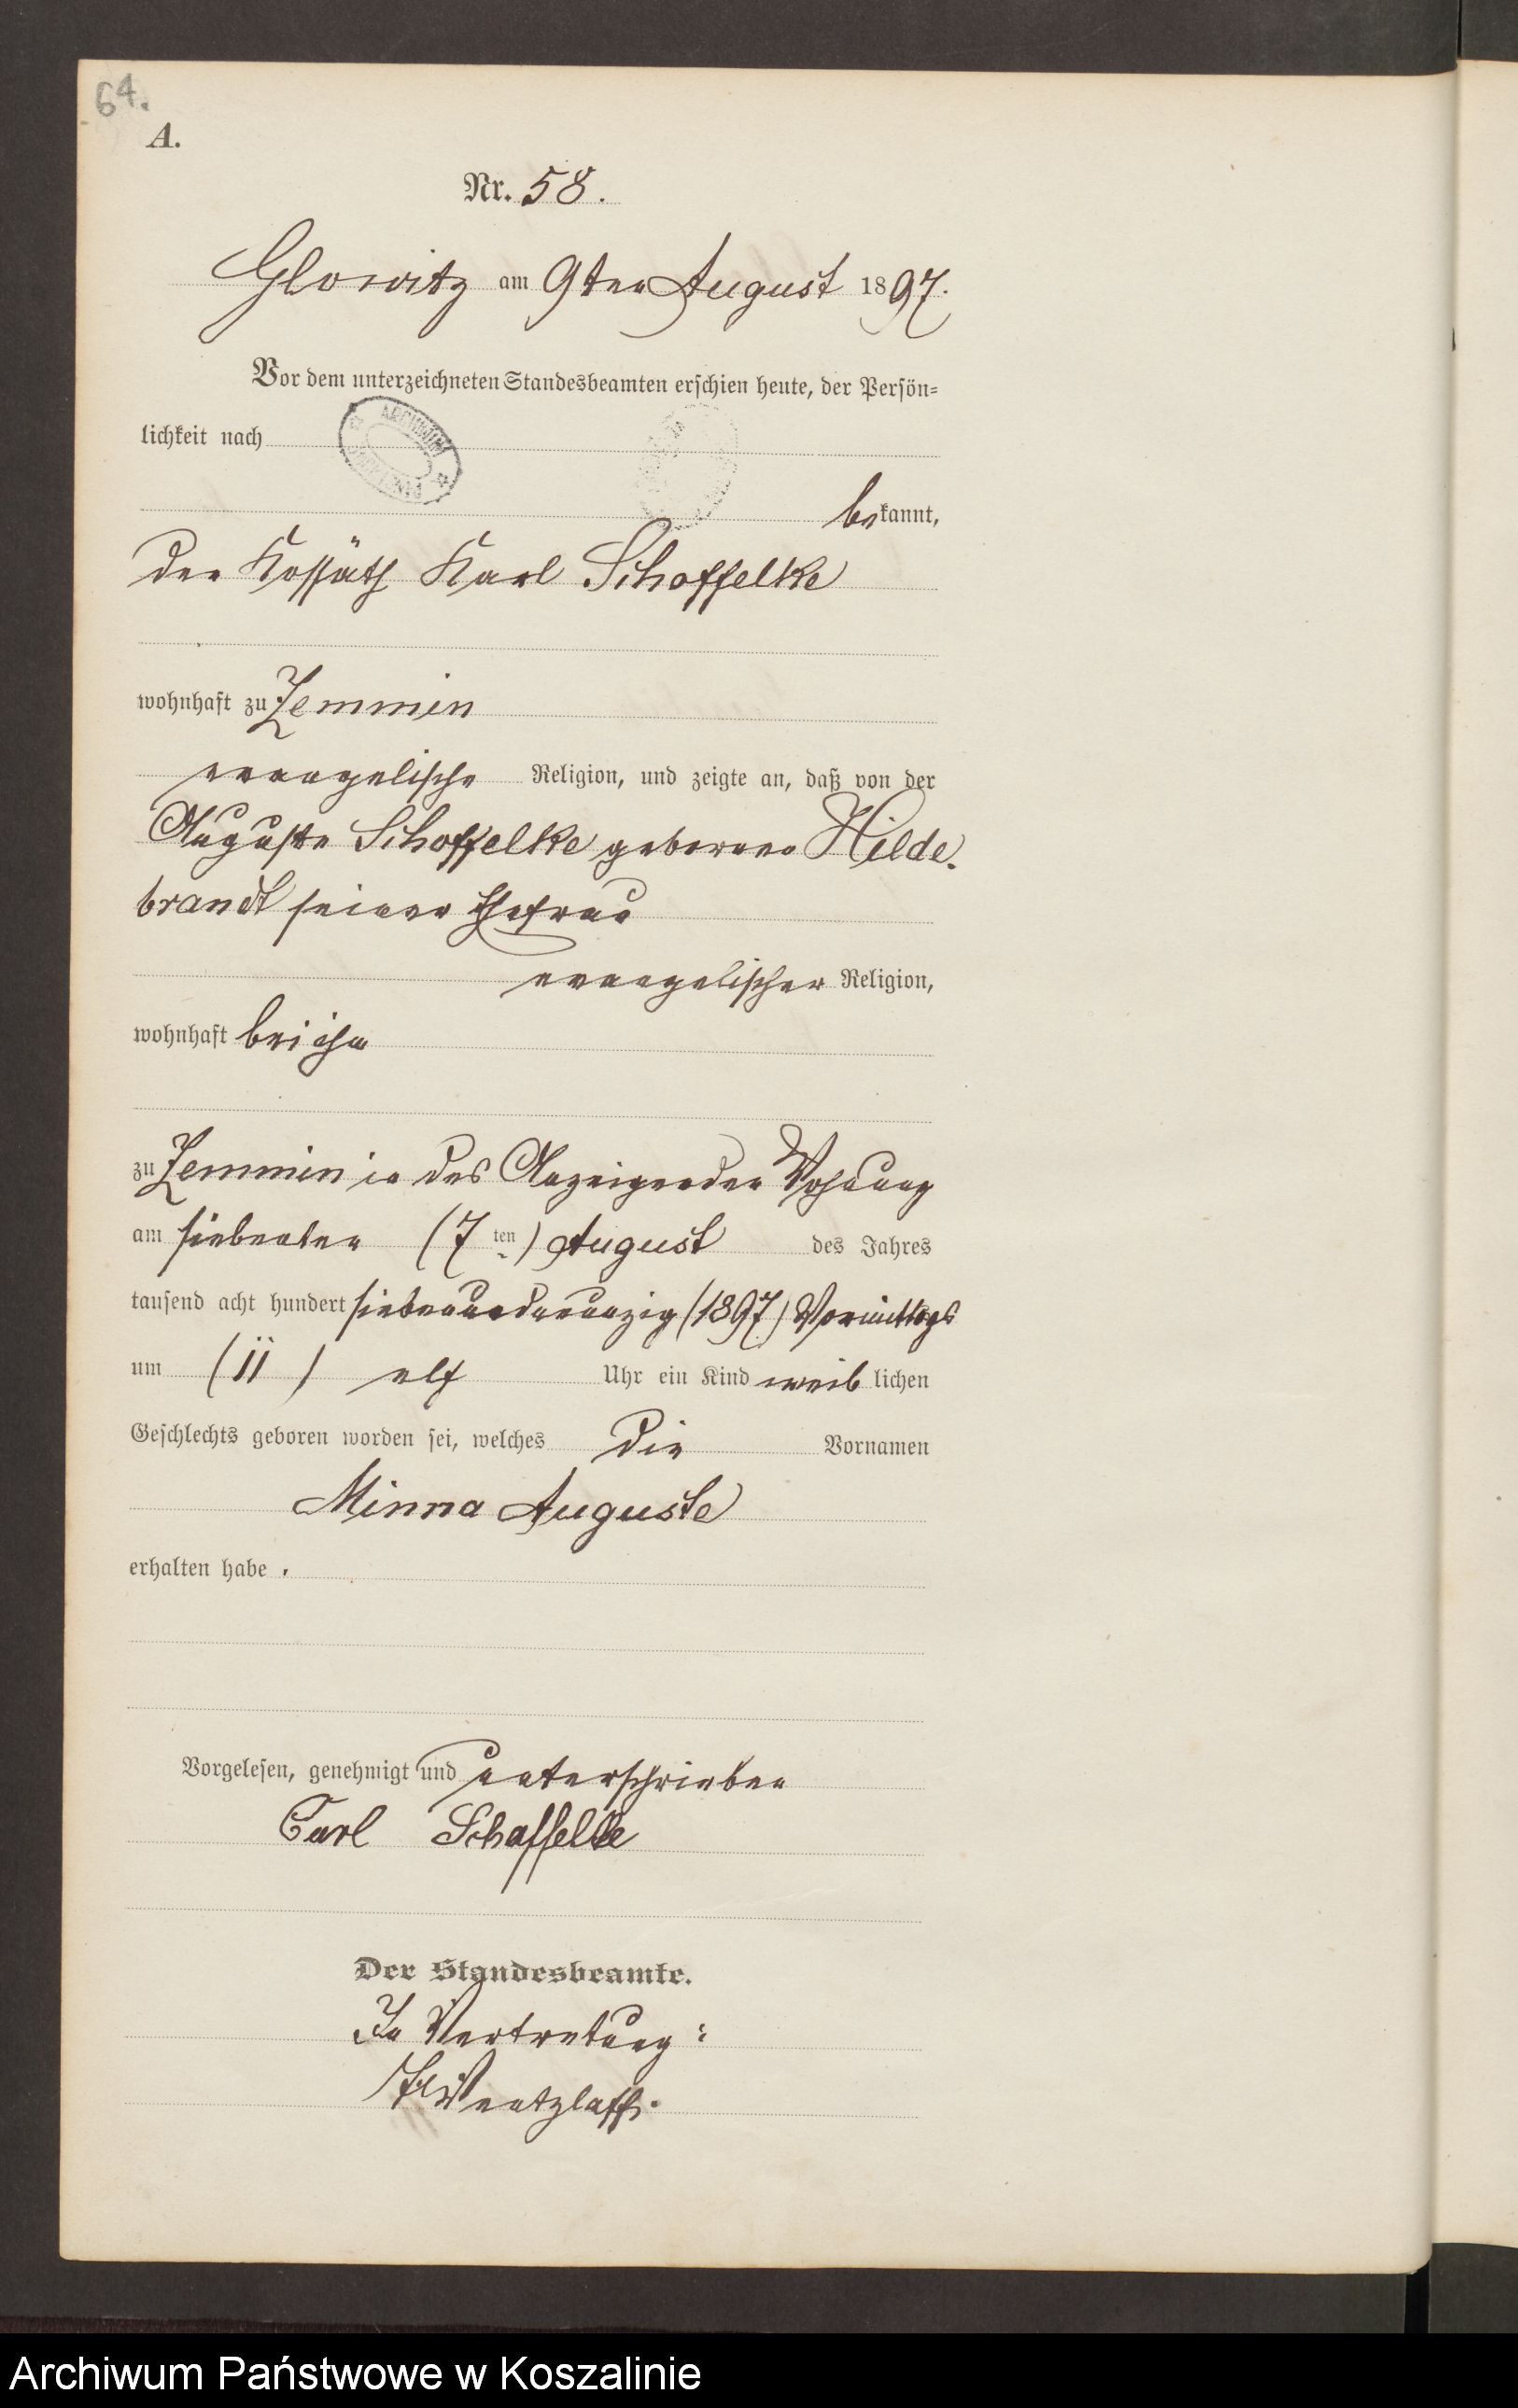 64.
A.
Nr. 58.
Glowitz am 9ten August 1897.
Vor dem unterzeichneten Standesbeamten erschien heute, der Persön=
lichkeit nach
ARCHIWUM
bekannt,
der Kossäth Karl Schoffelke
wohnhaft zu Zemmin
evangelische Religion, und zeigte an, daß von der
Auguste Schoffelke geborene Hilde-
brandt seiner Ehefrau
evangelischer Religion,
wohnhaft bei ihm
zu Zemmin in des Anzeigenden Wohnung
am siebenten (7 ten) August des Jahres
tausend acht hundert siebenundneunzig (1897) Vormittags
um (11) elf Uhr ein Kind weiblichen
Geschlechts geboren worden sei, welches die Vornamen
Minna Auguste
erhalten habe.
Vorgelesen, genehmigt und unterschrieben
Carl Schaffelke
Der Standesbeamte.
In Vertretung:
Wentzlaff.
Archiwum Państwowe w Koszalinie